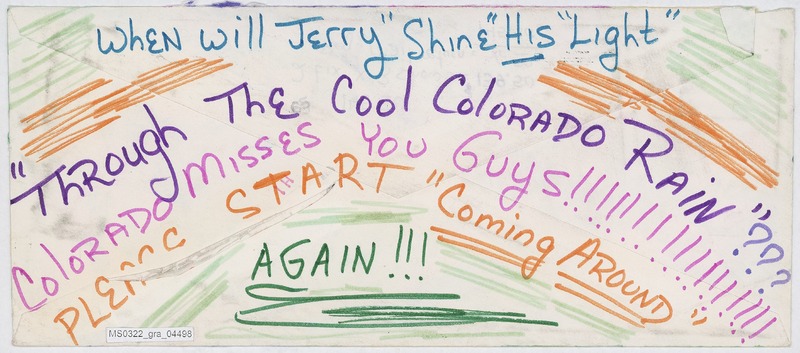 When will Jerry "Shine" His "Light"
"Through The Cool Colorado Rain"???
Colorado Misses You Guys!!!!!!!!!!!!!!!!!!!!
PLEASE START "Coming AROUND"
AGAIN!!!
MS0322_gra_04498